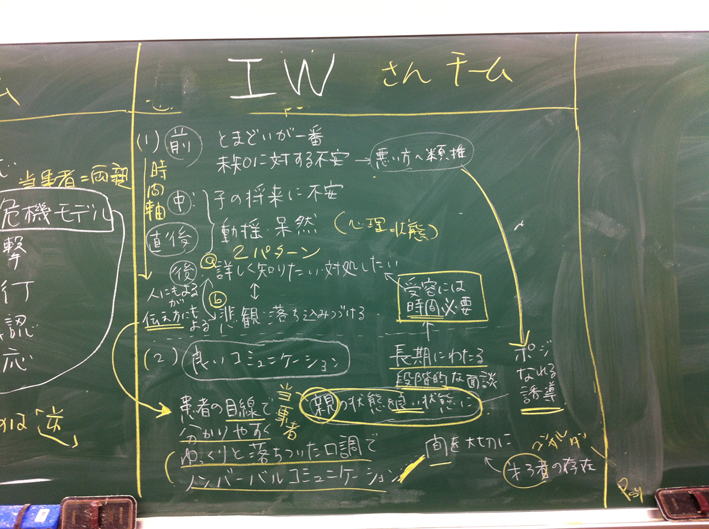 ム
当事者=両親
危機モデル
撃
行
認
応
は逆
IWさんチーム
(1) 前 とまどいが一番
未知に対する不安 → 悪い方へ類推
時間軸
中 子の将来に不安
直後 動揺 呆然 (心理状態)
2パターン
後 ⓐ 詳しく知りたい 対処したい
人にもよるが
伝え方にもよる
ⓑ 悲観 落ち込みつづける
受容には
時間必要
(2) 良いコミュニケーション
長期にわたる
段階的な面談
ポジ
なれる
誘導
患者の目線で
当事者
分かりやすく
親の状態を良い状態に
ゆっくりと落ちついた口調で
ノンバーバルコミュニケーション
間を大切に
者の存在